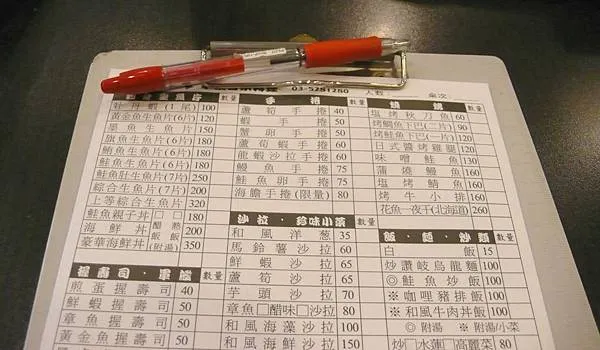 03-5251280 人數: 桌次:
片 數量
牡丹蝦(1尾) 100
黃金魚生魚片(6片) 120
墨魚生魚片 150
旗魚生魚片(6片) 180
鮪魚生魚片(6片) 180
鮭魚生魚片(6片) 180
鮭魚肚生魚片(7片) 250
綜合生魚片(7片) 200
上等綜合生魚片 320
鮭魚親子丼 □ □ 180
海鮮丼 醋飯 熱飯 200
豪華海鮮丼 (附湯) 350
握壽司·軍艦 數量
煎蛋握壽司 40
鮮蝦握壽司 50
章魚握壽司 50
黃金魚握壽司 50
手捲 數量
蘆筍手捲 40
蝦手捲 50
蟹卵手捲 50
蘆筍蝦手捲 60
龍蝦沙拉手捲 60
鰻魚手捲 75
鮭魚卵手捲 75
海膽手捲(限量) 80
沙拉·珍味小菜 數量
和風洋蔥 35
馬鈴薯沙拉 60
鮮蝦沙拉 65
蘆筍沙拉 65
芋頭沙拉 70
章魚□醋味□沙拉 80
和風海藻沙拉 100
和風鮮魚沙拉 150
燒烤 數量
塩烤秋刀魚 60
烤鯛魚下巴(二片) 90
烤鮭魚下巴(一片) 120
日式醬烤雞腿 120
味噌鮭魚 130
蒲燒鰻魚 160
塩烤鯖魚 160
烤牛小排 160
花魚一夜干(北海道) 260
飯·麵·炒類 數量
白飯 15
炒讚岐烏龍麵 100
◎鮭魚炒飯 100
※咖哩豬排飯 100
※和風牛肉丼飯 100
◎ 附湯 ※ 附湯/小菜
炒□水蓮□高麗菜 80